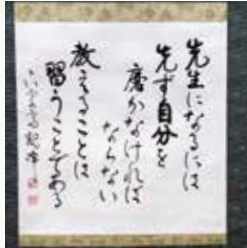 先生になるには
先ず自分を
磨かなければ
ならない
教えることは
習うことである